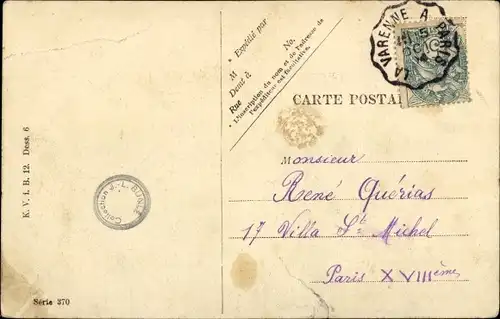 K. V. i. B. 12. Dess. 6
Série 370
Expédié par
M
Demt à
Rue
No.
L'inscription du nom et de l'adresse de
l'expéditeur est facultative.
LA VARENNE A PARIS
CARTE POSTA
Monsieur
René Quérias
17 Villa St. Michel
Paris XVIIIème